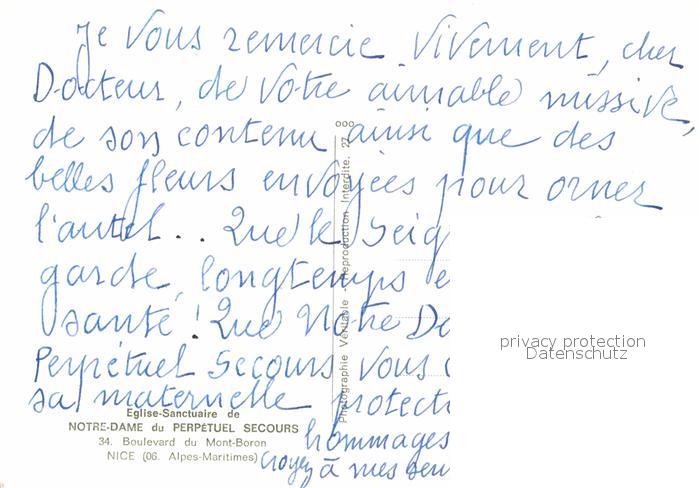 Je vous remercie vivement, cher
Docteur, de votre aimable missive,
de son contenu ainsi que des
belles fleurs envoyées pour orner
l'autel.. Que le Seig
garde longtemps e
santé ! Que Notre D
Perpétuel Secours vous
sa maternelle protecti
hommages
Croyez à mes sen
Eglise-Sanctuaire de
NOTRE-DAME du PERPÉTUEL SECOURS
34. Boulevard du Mont-Boron
NICE (06. Alpes-Maritimes)
Photographie Véritable - Reproduction Interdite. 27
privacy protection
Datenschutz